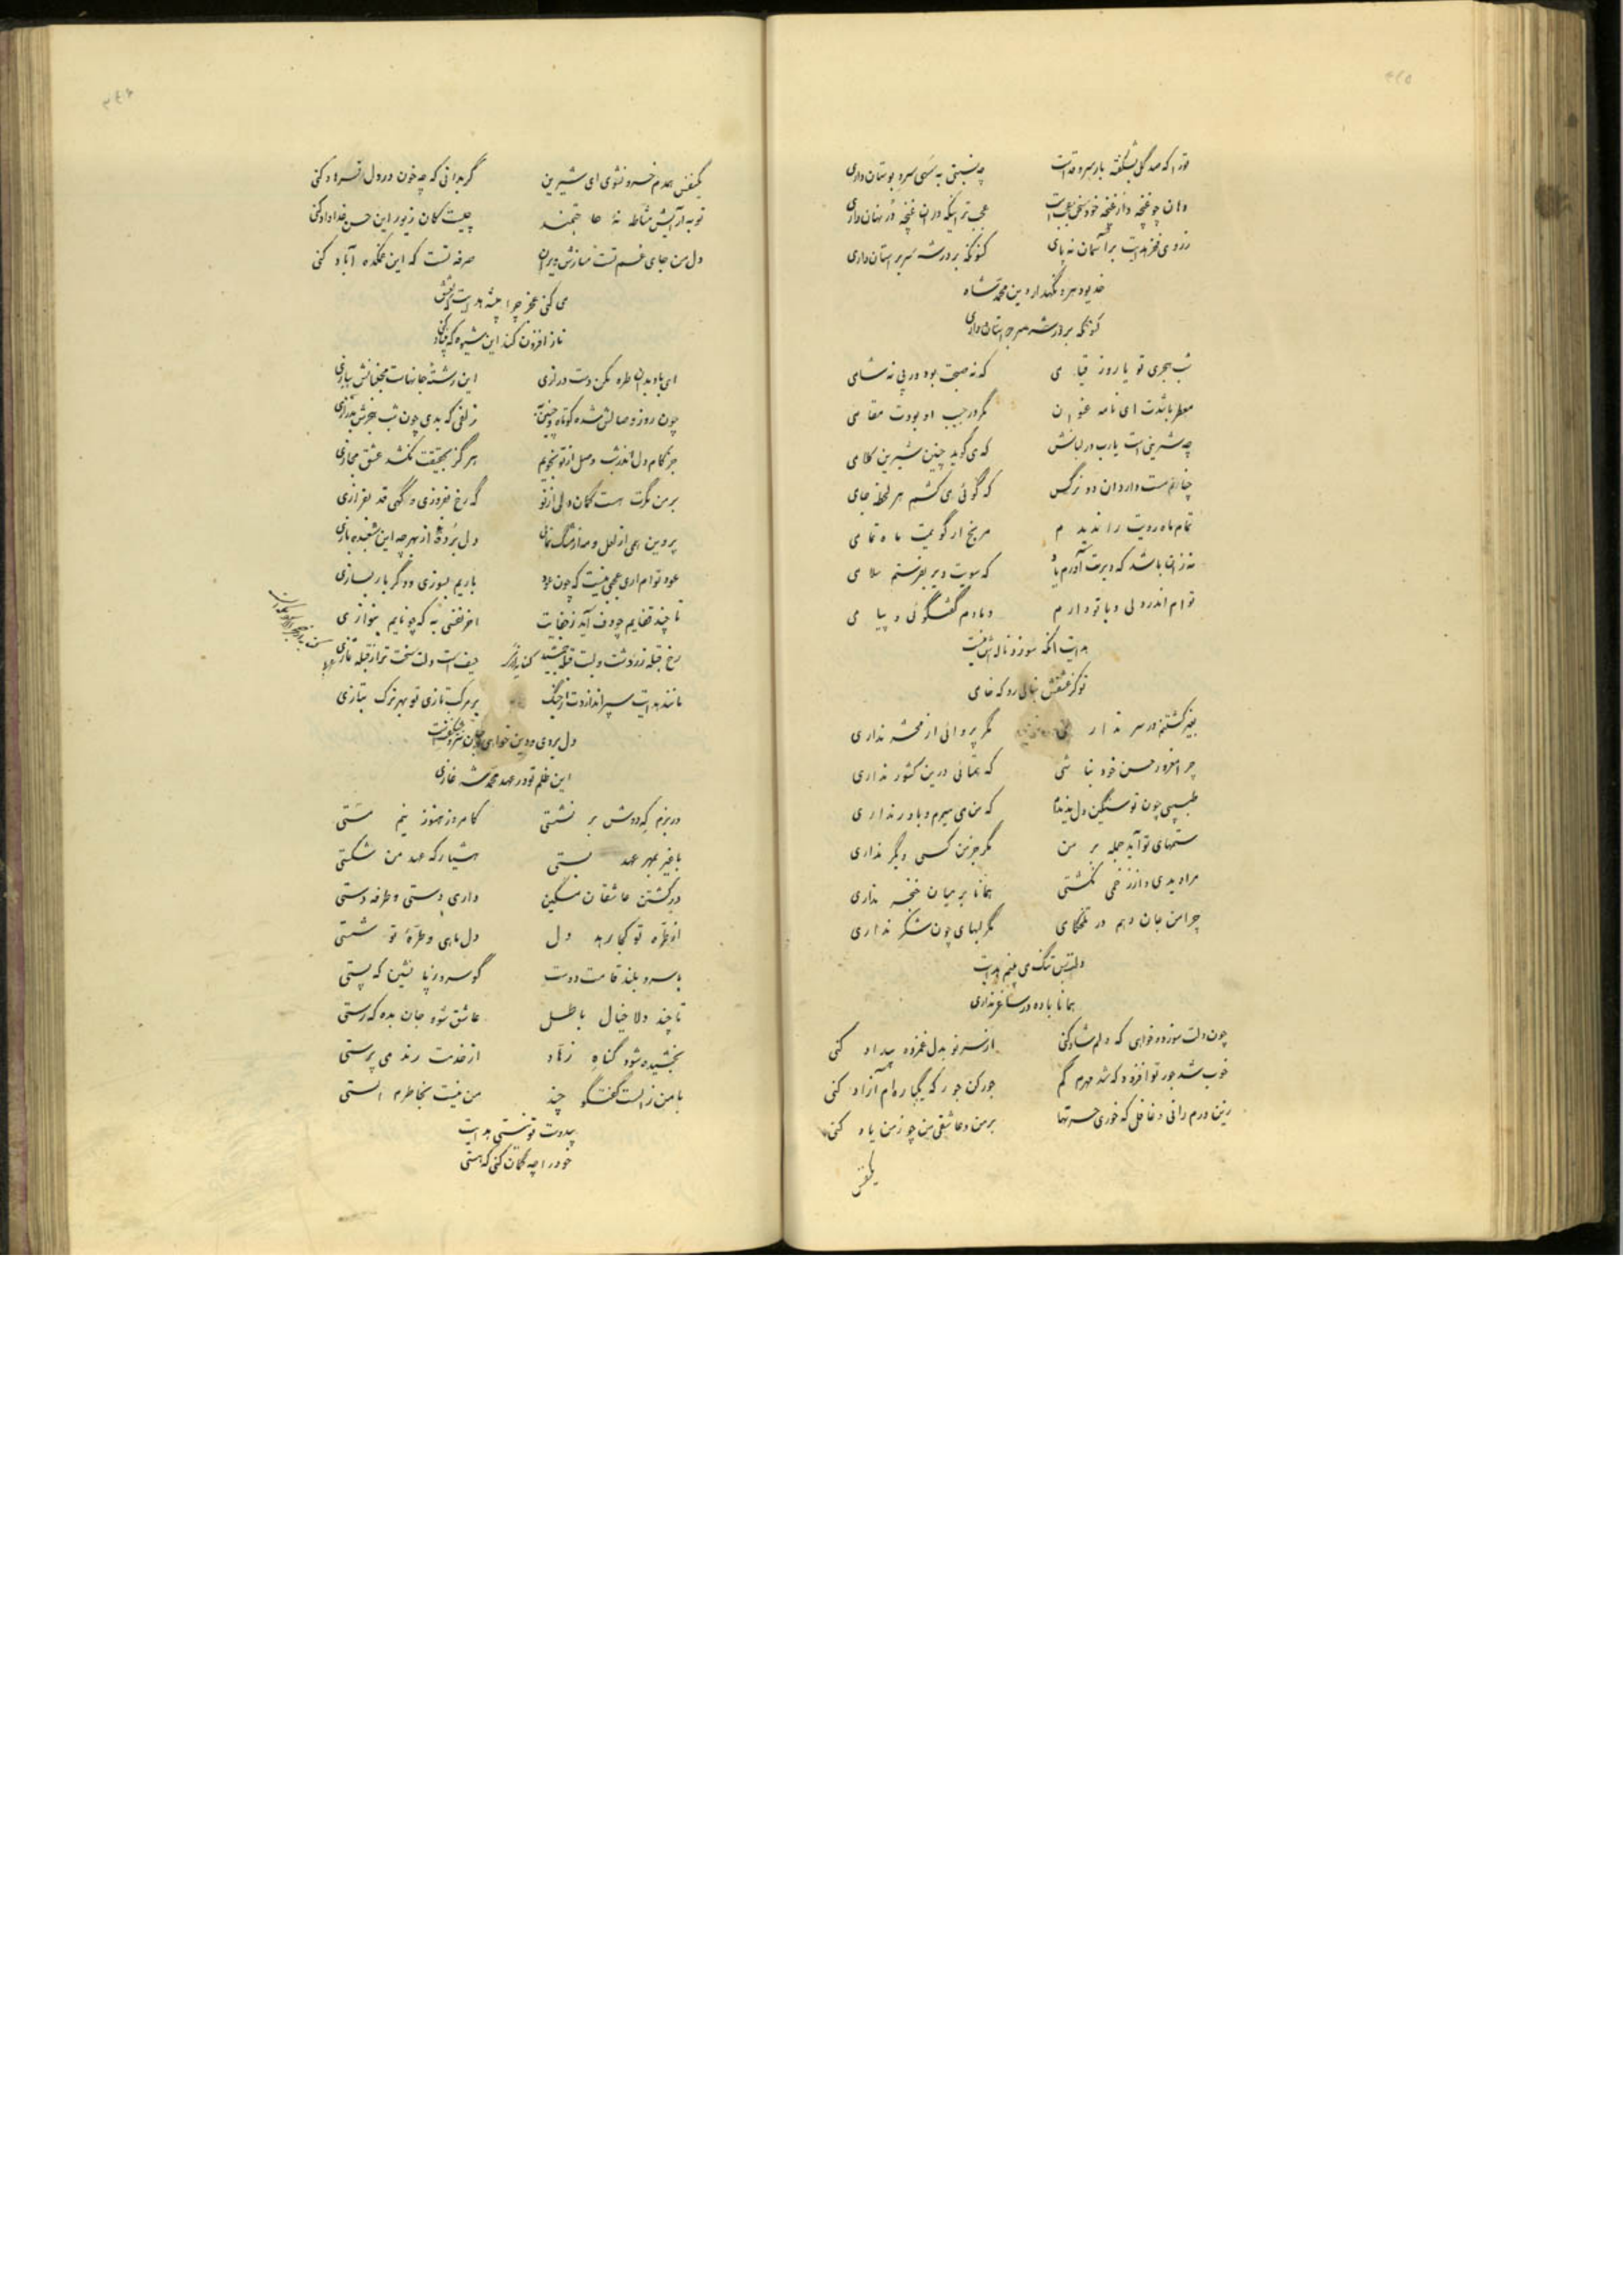 ترا که صد گل بشکفته بار سرو قد است چه نسبتی به سهی سرو بوستان داری
دهان چو غنچه و از غنچه خود سخن عجب است عجب‌تر اینکه در ان غنچه در نهان داری
ز روی فخر هدایت بر آسمان نه پای کنونکه بر در شه سر بر استان داری
خدیو دهر و نگهدار دین محمد شاه
کنونکه بر در شه سر بر استان داری
شب هجری تو یا روز قیامی که نه صبحت بود در پی نه شامی
معطر باشدت ای نامه عنوان مگر در جیب او بودت مقامی
چه شرینی است یارب در لبانش که می گوید چنین شیرین کلامی
چنانم مست دارد ان دو نرگس که گوئی می کشم هر لحظه جامی
تمام ماه رویت را ندیدم مرنج ار گویمت ماه تمامی
نه زان باشد که دیرت آورم یاد که سویت دیر بفرستم سلامی
توام اندر دلی و با تو دارم دمادم گفتگوئی و پیامی
هدایت انکه سوز و ناله اش نیست
تو کز عشقش بنالی رو که خامی
بغیر کشتنم در سر نداری مگر پروائی از محشر نداری
چرا مغرور حسن خود نباشی که همتائی درین کشور نداری
طبیبی چون تو سنگین دل ندیدم که من می میرم و باور نداری
ستمهای تو آید جمله بر من مگر جز من کسی دیگر نداری
مرا دیدی و از زخمی نکشتی همانا بر میان خنجر نداری
چرا من جان دهم در تلخکامی مگر لبهای چون شکر نداری
دلت بس تنگ می بینم هدایت
همانا باده در ساغر نداری
چون دلت سوزد و خواهی که دلم شاد کنی از سر نو بدل غمزده بیداد کنی
خوب شد جور تو افزود که شد مهرم کم جور کن جور که یکباره‌ام آزاد کنی
زین درم رانی و غافل که خوری حسرتها بر من و عاشقی من چو ز من یاد کنی
یکنفس
یکنفس همدم خسرو نشوی ای شیرین گر بدانی که چه خون در دل فرهاد کنی
تو به آرایش مشاطه نهٔ حاجتمند چیست کان زیور این حسن خداداد کنی
دل من جای غم تست مسازش ویران صرفه تست که این غمکده آباد کنی
می کنی عجز چرا پیشه هدایت بعشق
ناز افزون کند این شیوه که بنیاد کنی
ای باد بدان طره مکن دست درازی این رشتهٔ جانهاست مجنبانش ببازی
چون روز وصالش شده کوتاه زلفی که بدی چون شب هجرش بدرازی
جز کام دل اندر شب وصل از تو نجویم هرگز بحقیقت نکشد عشق مجازی
بر من مگرت هست گمان دلی از نو گه رخ بفروزی و گهی قد بفرازی
پروین دهی از لعل و مه از مشک نمائی دل بردهٔ از بهر چه این شعبده بازی
عود توام ار می عجبی نیست که چون عود باریم بسوزی و دگر بار بسازی
تا چند قفایم چو دف آید ز جفایت اخر نفسی به که چو نایم بنوازی
رخ قبله زردشت و لبت قبله جمشید حیف است دلت سخت‌تر از قبله تازی
مانند هدایت سپر اندازدت از جنگ بر مرکب تازی تو بهر ترک بتازی
دل بردی و دین خواهی
این ظلم تو در عهد محمد شه غازی
در بزم که دوش بر نشستی کامروز هنوز نیم مستی
با غیر بمهر عهد بستی هشدار که عهد من شکستی
در کشتن عاشقان مسکین داری دستی و طرفه دستی
از طره تو کجا رهد دل دل ماهی و طرهٔ تو شستی
با سرو بلند قامت دوست گو سرو ز پا نشین که پستی
تا چند دلا خیال باطل عاشق شو و جان بده که رستی
بخشیده شود گناه زهاد از خدمت رند می پرستی
با من ز الست گفتگو چند من نیست بخاطرم الستی
پیدوست تو نستی هدایت
خود را چه گمان کنی که هستی